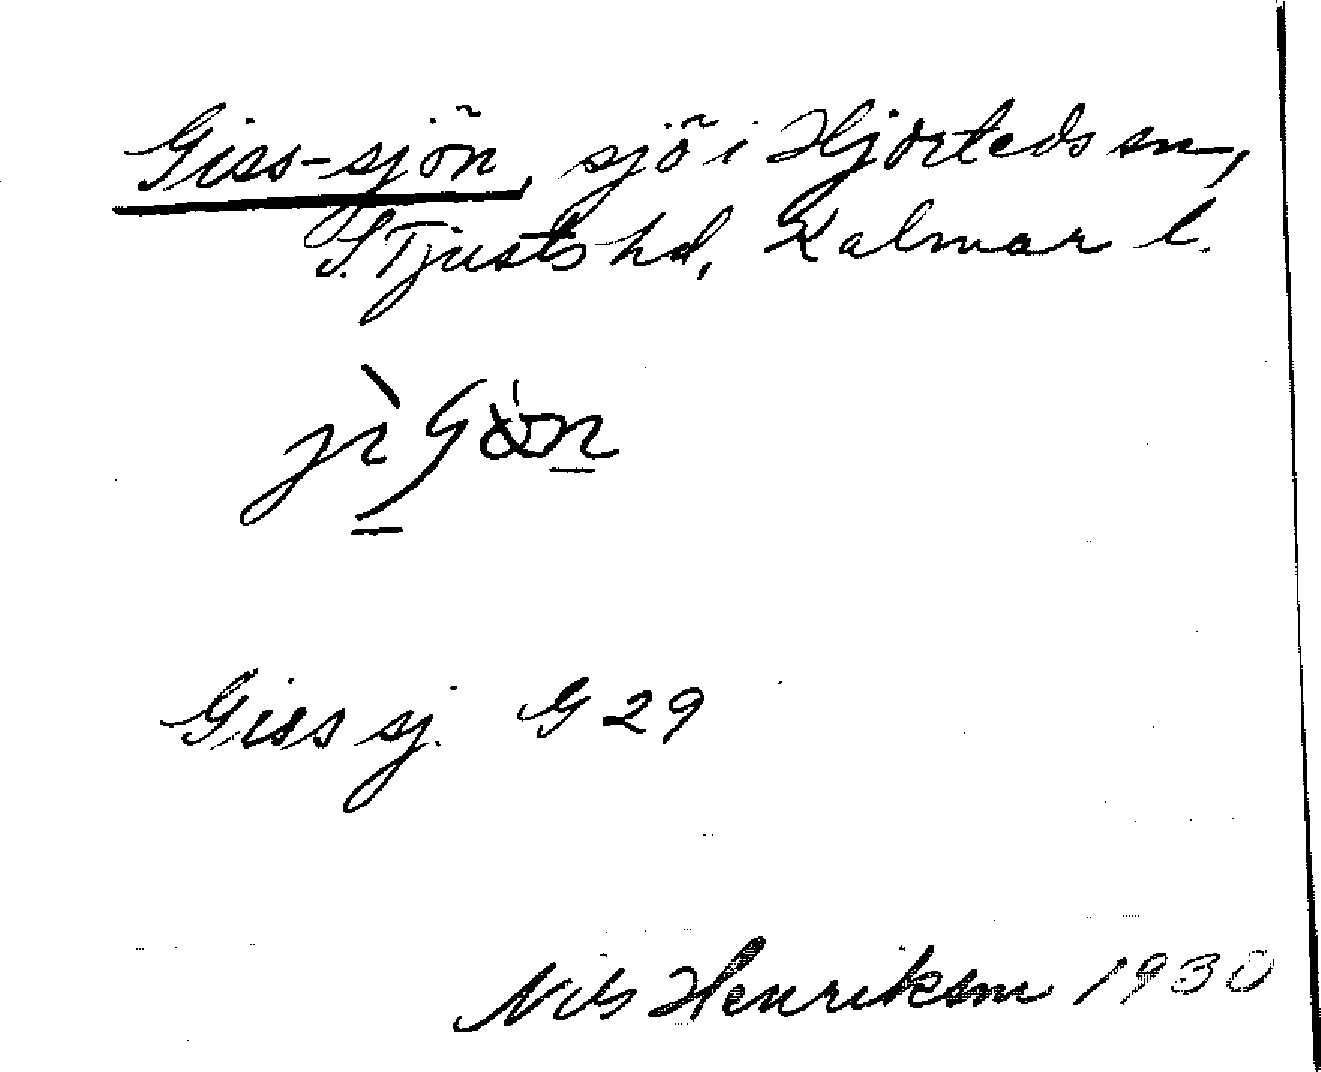 Giss-sjön, sjö i Hjorteds sn,
S. Tjusts hd, Kalmar l.
Giss sj. G 29
Nils Henrikson 1930